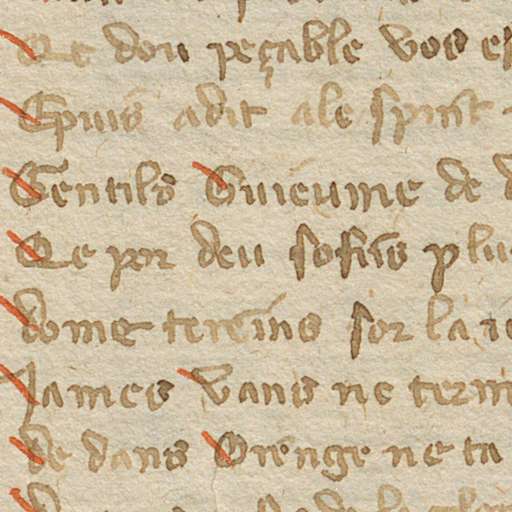 Qe don peçable vos
Epuis adit ale spirit
Gentils Guieume de
Qe por deu sofris plu
dome tereins sor la
James vans ne term
de dans Orenge ne ta